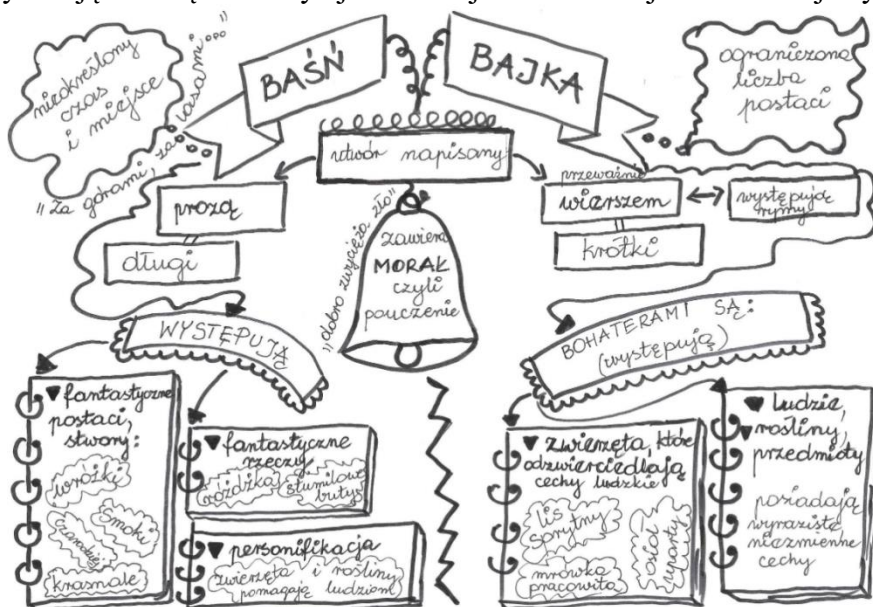 nieokreślony
czas
i miejsce
"Za górami, za lasami..."
BAŚŃ
BAJKA
ograniczona
liczba
postaci
utwór napisany
prozą
długi
przeważnie
wierszem
występują
rymy
krótki
"dobro zwycięża zło"
zawiera
MORAŁ
czyli
pouczenie
WYSTĘPUJĄ
BOHATERAMI SĄ:
(występują)
fantastyczne
postaci,
stwory:
wróżki
smoki
krasnale
fantastyczne
rzeczy
różdżka
stumilowe
buty
personifikacja
zwierzęta i rośliny
pomagają ludziom
zwierzęta, które
odzwierciedlają
cechy ludzkie
lis
sprytny
osioł
uparty
mrówka
pracowita
ludzie,
rośliny,
przedmioty
posiadają
wyraziste,
niezmienne
cechy